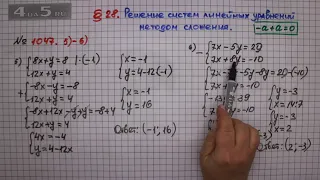 §28. Решение систем линейных уравнений
методом сложения.
-a+a=0
№ 1047. 5)-6)
5) {8x+y=8 |·(-1)
12x+y=4
{-8x-y=-8
12x+y=4
{-8x+12x-y+y=-8+4
12x+y=4
{4x=-4
y=4-12x
{x=-1
y=4-12·(-1)
{x=-1
y=16
Ответ: (-1; 16)
6) {7x-5y=29
7x+8y=-10
7x+8y=-10
-13y=39
y=-3
y=-3
x=2
Ответ: (2; -3)